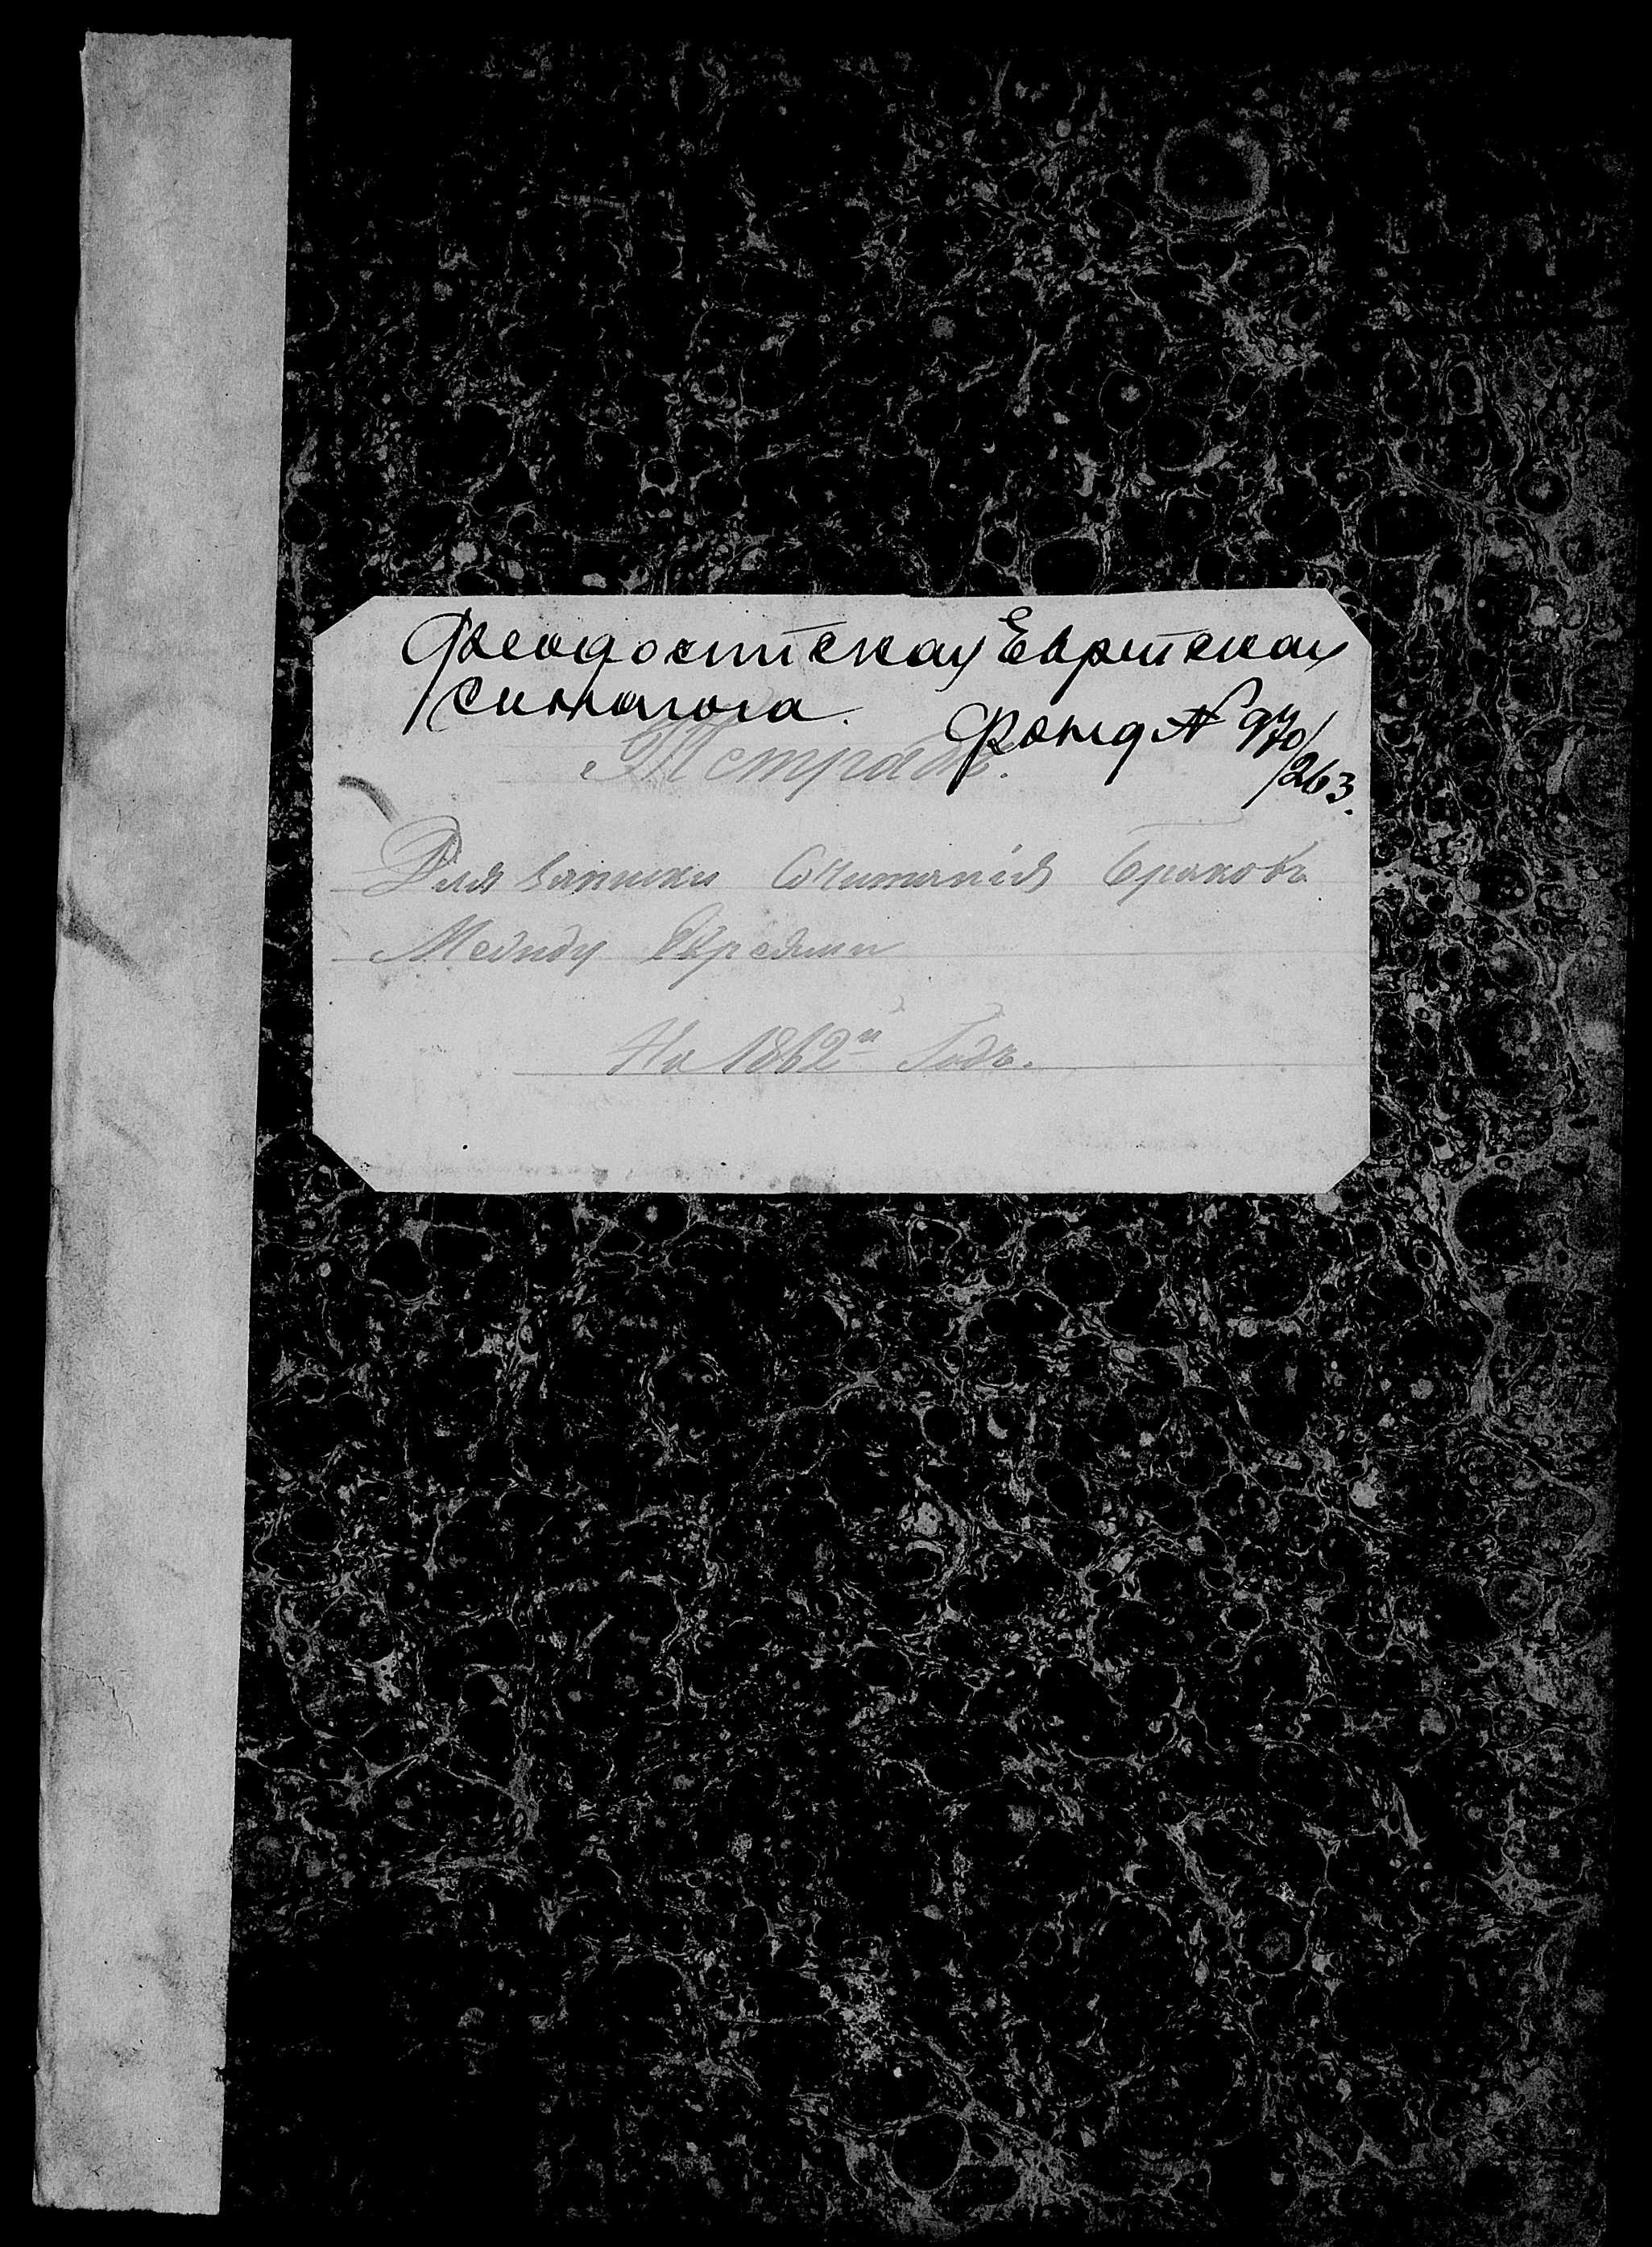 Феодосийская Еврейская
синагога.
Фонд № 970/263.
Тетрадь.
Для записки Сочитанія Браковъ
Между Евреями
На 1862й Годъ.